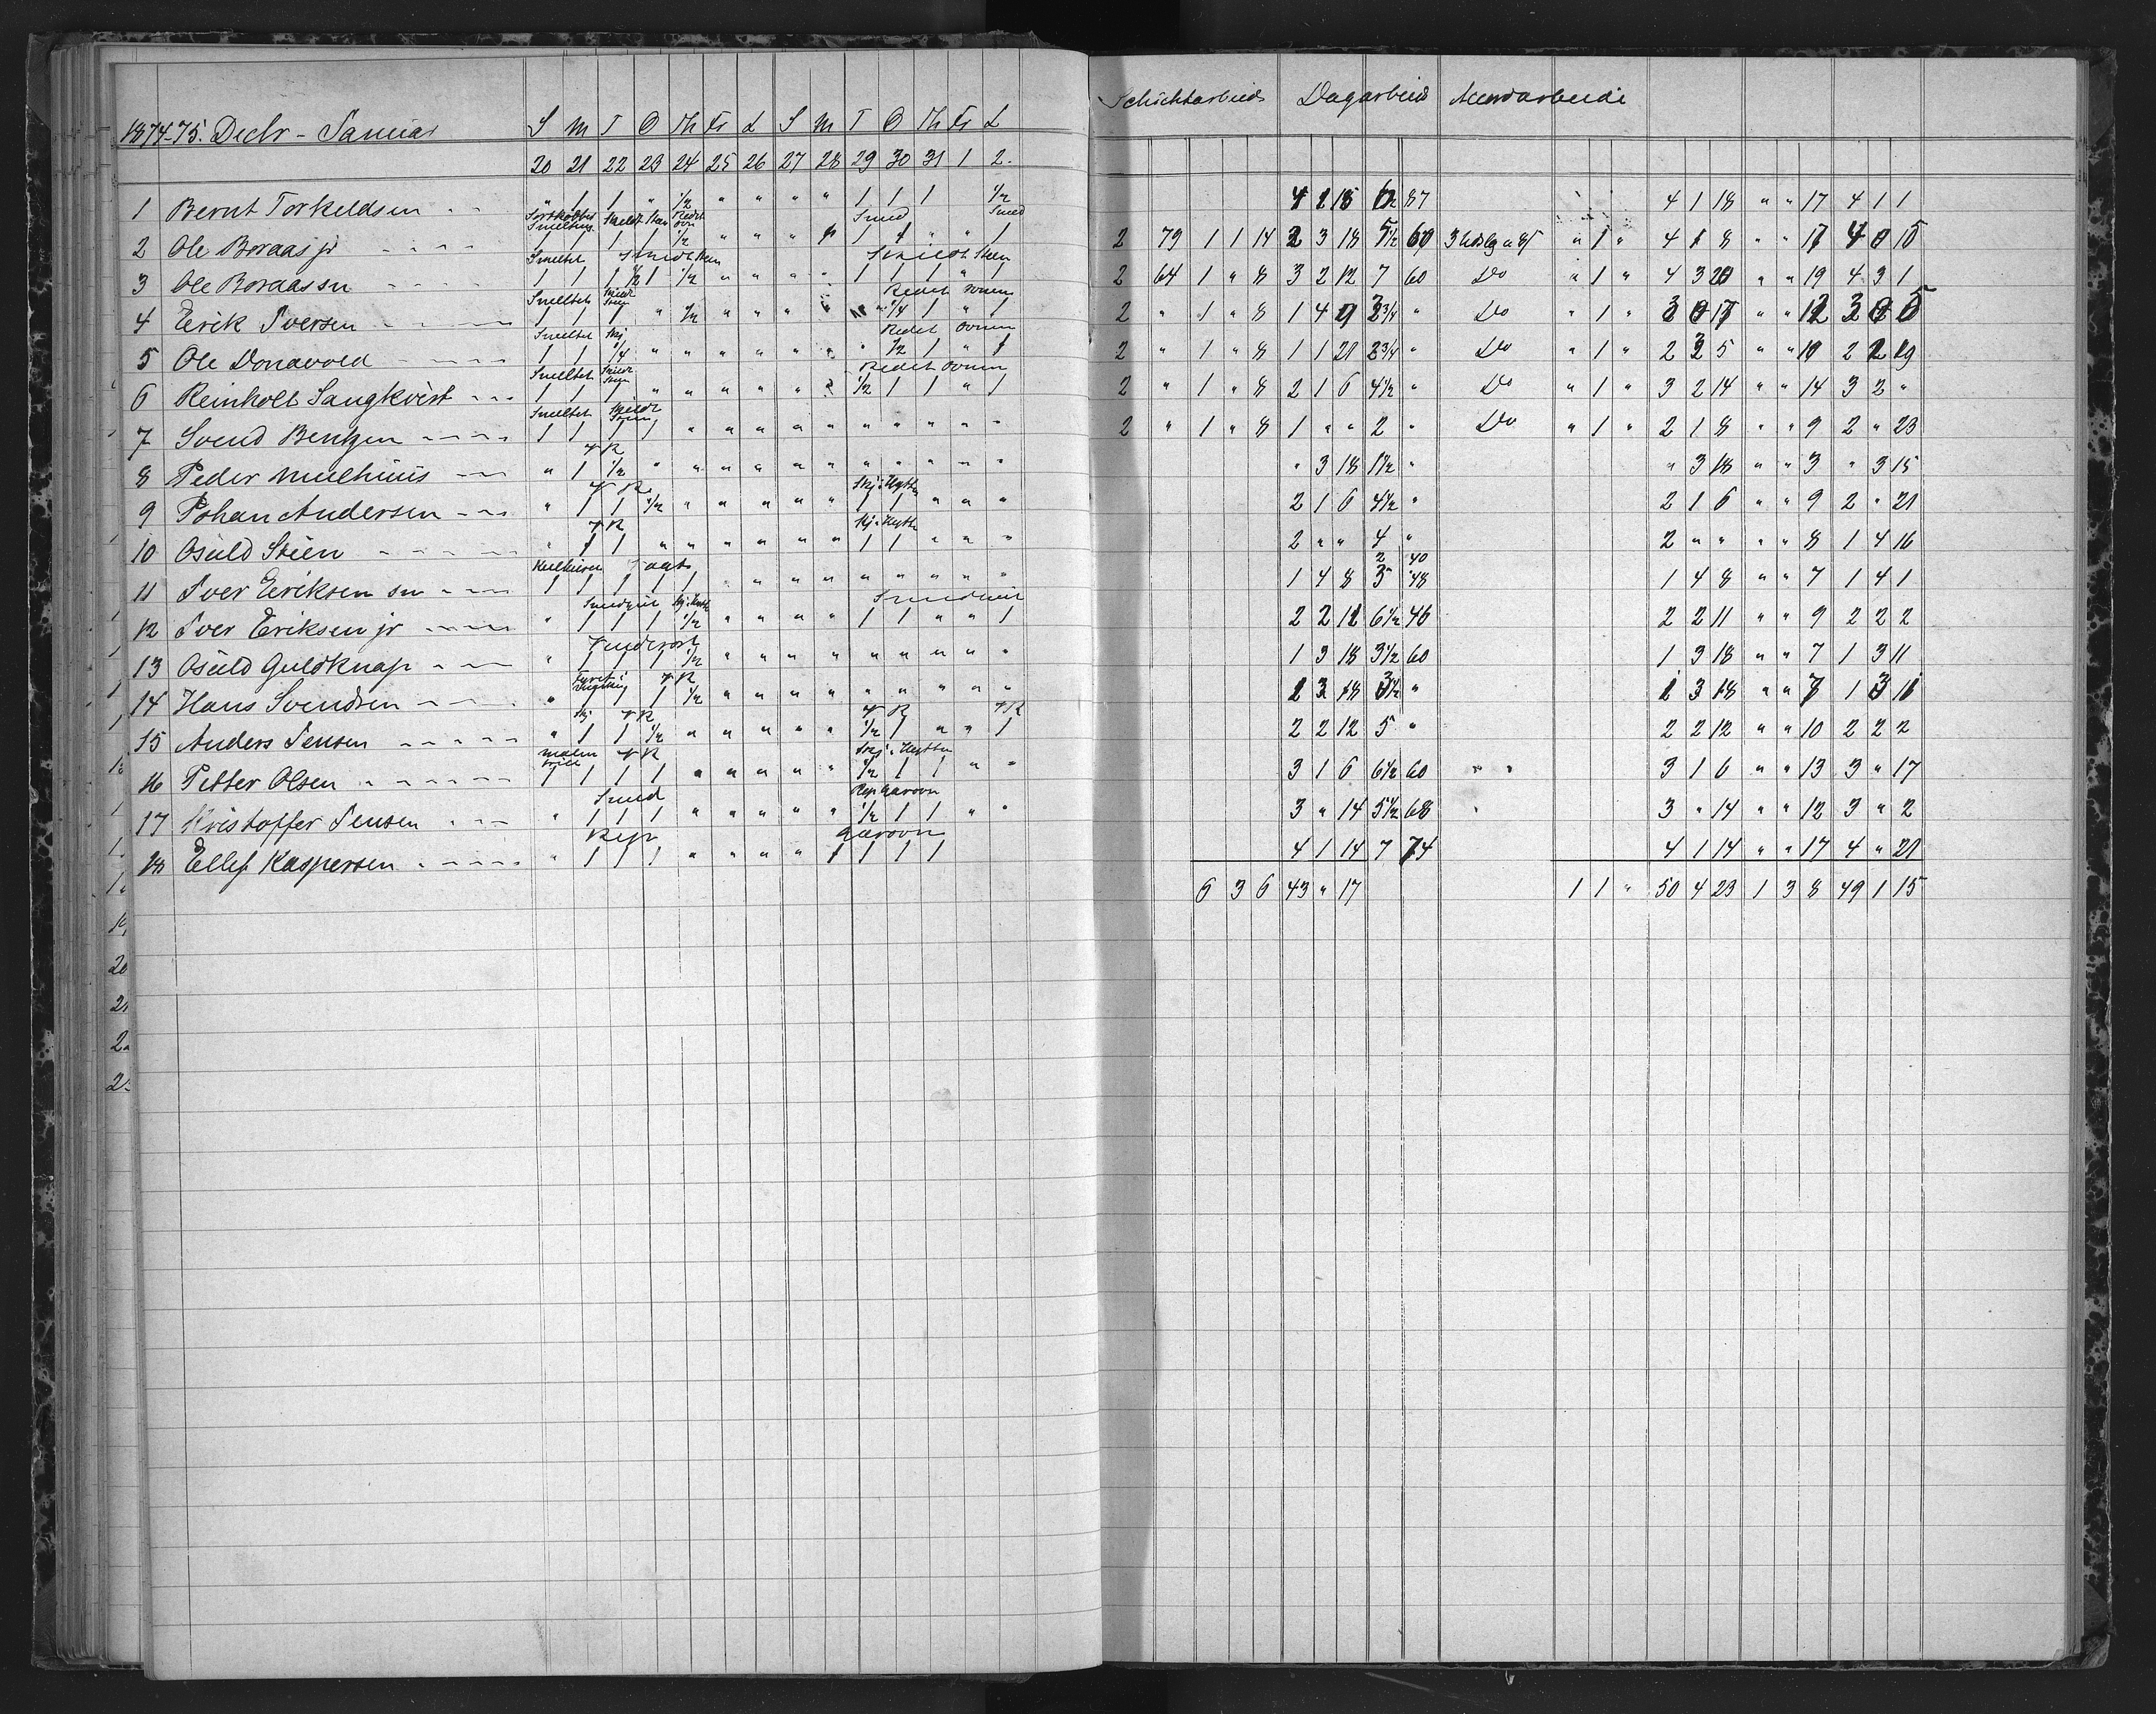 1874-75. Decbr - Januar S M T O Th Fr L S M T O Th Fr L
20 21 22 23 24 25 26 27 28 29 30 31 1 2.
1 Bernt Torkeldsen " 1 1 " 1/2 " " " " 1 1 1 1/2
Smeltning Skeidt Sten Redet ovn Smed Smed
2 Ole Boraas jr 1 1 1 1 1/2 " " " 1 1 1 " " 1
Smeltet Skeidt Sten Skeidt Steen
3 Ole Boraas sn 1 1 1 1/2 1 1/2 " " " " 1 1 1 " 1
Smeltet Skeidt Sten Redet ovnen
4 Erik Iversen 1 1 1 " 1/2 " " " " " 1/4 1 " 1
Smeltet Skj Redet ovnen
5 Ole Donavold 1 1 1/4 " " " " " " " 1/2 1 " 1
Smeltet Skeidt Steen Redet ovnen
6 Reinholt Langkvist 1 1 1 " " " " " 2 1/2 1 1 " 1
Smeltet Skeidt Steen
7 Svend Bentzen 1 1 1 1 " " " " " " " " " "
V R
8 Peder Mulhuus " 1 1/2 " " " " " " " " " " "
V R Skj: Hytten
9 Johan Andersen " 1 1 1/2 " " " " " 1 1 " " "
V R Skj: Hytten
10 Osuld Stien " 1 1 " " " " " " 1 1 " " "
Kulhusen
11 Iver Eeriksen sn 1 1 1 1 1 " " " " " " " " "
Smedgut Skj: Hytt Smedgut
12 Iver Eriksen jr " 1 1 1 1/2 " " " " 1 1 " " 1
13 Osuld Guldknap " 1 1 1 1/2 " " " " " " " " "
V R
14 Hans Svendsen " 1 1 1 1/2 " " " " " " " " "
Skj V R V R V R
15 Anders Jensen " 1 1 1/2 " " " " " 1/2 1 " " 1
V R Skj: Hytten
16 Petter Olsen 1 1 1 1 " " " " " 1/2 1 1 " "
Smed Rep Garovn
17 Kristoffer Jensen " 1 1 1 " " " " " 1/2 1 1 " "
Rep Garovn
18 Ellef Kaspersen " 1 1 1 " " " " 1 1 1 1
Schichtarbeide Dagarbeide Accordarbeide
4 1 18 87 4 1 18 " " 17 4 1 1
2 79 1 1 14 2 3 18 5 1/2 60 " 1 " 4 1 8 " " 17 4 0 15
2 64 1 " 8 3 2 12 7 60 Do " 1 " 4 3 20 " " 19 4 3 1
2 " 1 " 8 1 4 9 3 3/4 " Do " 1 " 3 0 17 " " 12 3 0 5
2 " 1 " 8 1 1 21 2 3/4 " Do " 1 " 2 3 5 " " 10 2 2 19
2 " 1 " 8 2 1 6 4 1/2 " Do " 1 " 3 2 14 " " 14 3 2 "
2 " 1 " 8 1 " " 2 " Do " 1 " 2 1 8 " " 9 2 " 23
" 3 18 1 1/2 " " 3 18 " " 3 " 3 15
2 1 6 4 1/2 " 2 1 6 " " 9 2 " 21
2 " " 4 " 2 " " " " 8 1 4 16
2 40
1 4 8 3 48 1 4 8 " " 7 1 4 1
2 2 11 6 1/2 46 2 2 11 " " 9 2 2 2
1 3 18 3 1/2 60 1 3 18 " " 7 1 3 11
1 3 18 3 1/2 " 1 3 18 " " 7 1 3 11
2 2 12 5 " 2 2 12 " " 10 2 2 2
3 1 6 6 1/2 60 " " 3 1 6 " " 13 3 " 17
3 " 14 5 1/2 68 3 " 14 " " 12 3 " 2
4 1 14 7 74 4 1 14 " " 17 4 " 21
6 3 6 43 " 17 1 1 " 50 4 23 1 3 8 49 1 15